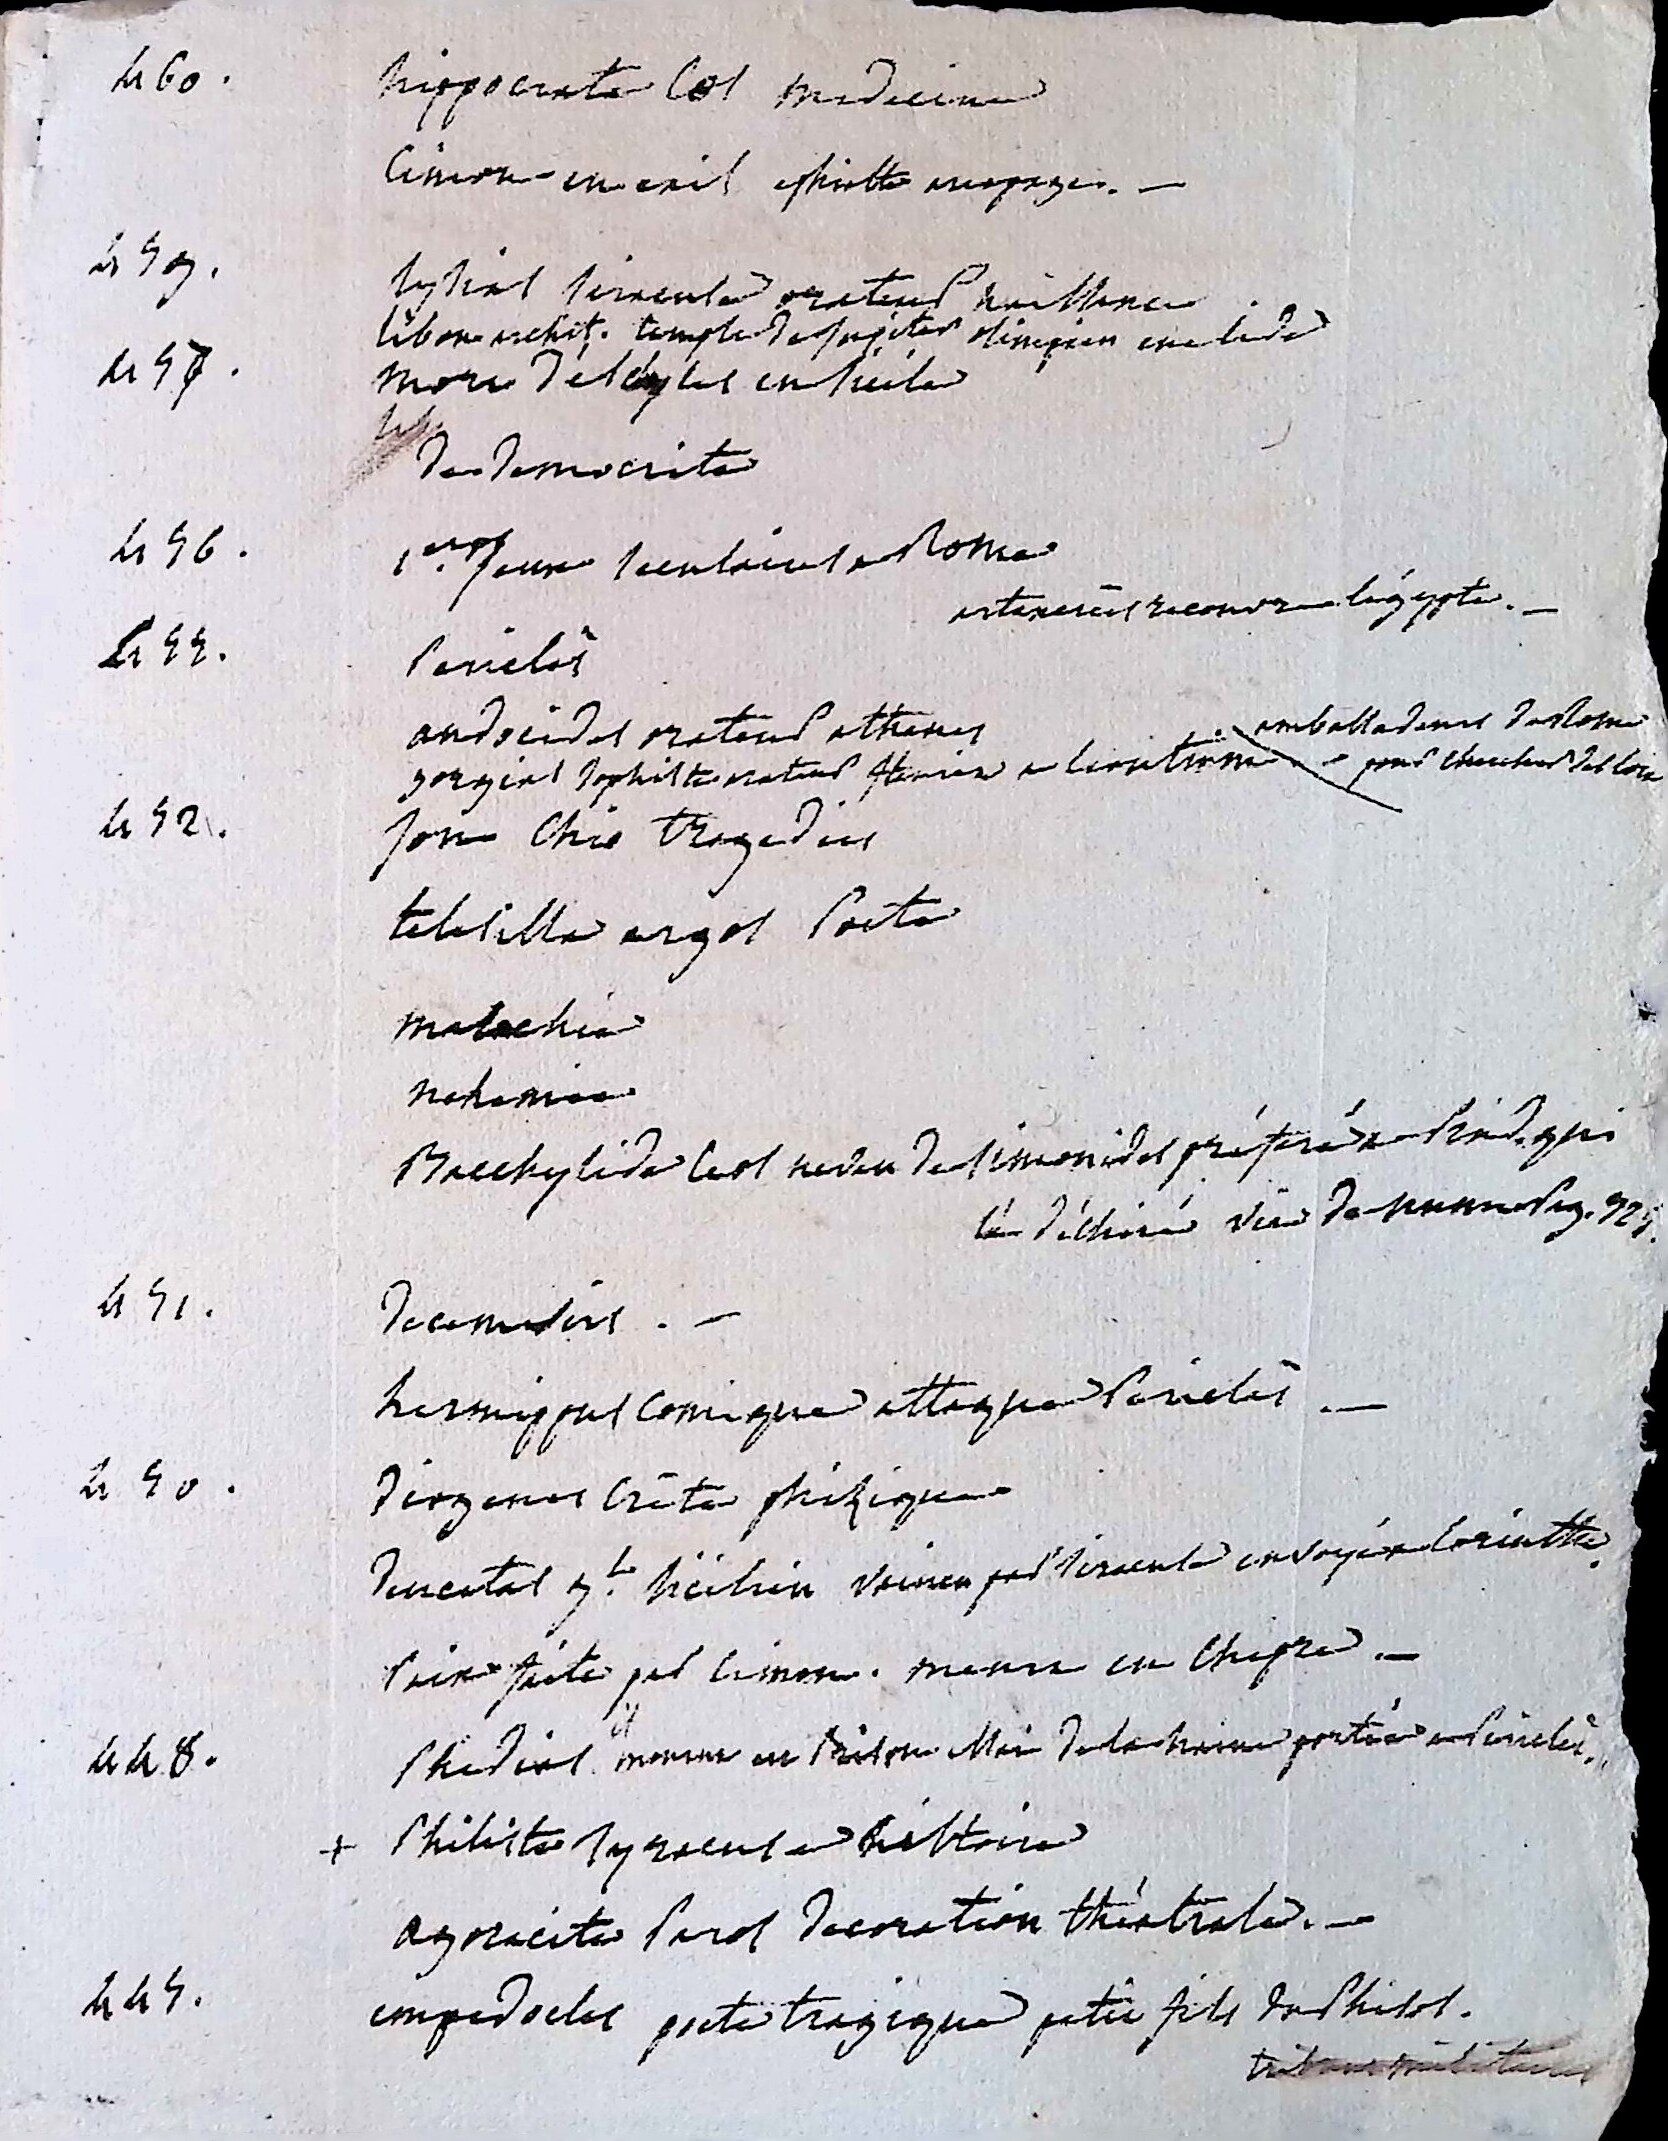 460. hippocrate Cos medecine
Cimon en exil ephialte areopage. —
459. lysias siracuse orateur naissance
libon archit. temple de Jupiter olimpien en elide
457. mort d'eschyles en sicile
de democrite
456. 1ers Jeux seculaires a Rome
artaxercès recouvre l'égypte. —
455. Periclès
andocides orateur athenes
ambassadeurs de Rome
gorgias sophiste orateur a Leontium
pour chercher des loix
452. Jon Chio tragedies
telesilla argos Poete
malachie
nehemie
Bacchylide Ceos neveu de simonides préféré a Pind. qui
l'a déchiré vie de pag.
451. decemvirs. —
hermippus comique attaque Periclès. —
450. diogenes Crète phizique
ducetas gl. sicilien vaincu par siracuse envoyé a Corinthe.
Paix faite par Cimon. meurt en Chipre. —
448. Phedias il mourut en Prison de la haine portée a Periclès.
+ Philiste syracuse histoire
agoracite Paros decoration théatrale. —
445. empedocles poete tragique petit fils du Philos.
tribuns militaires